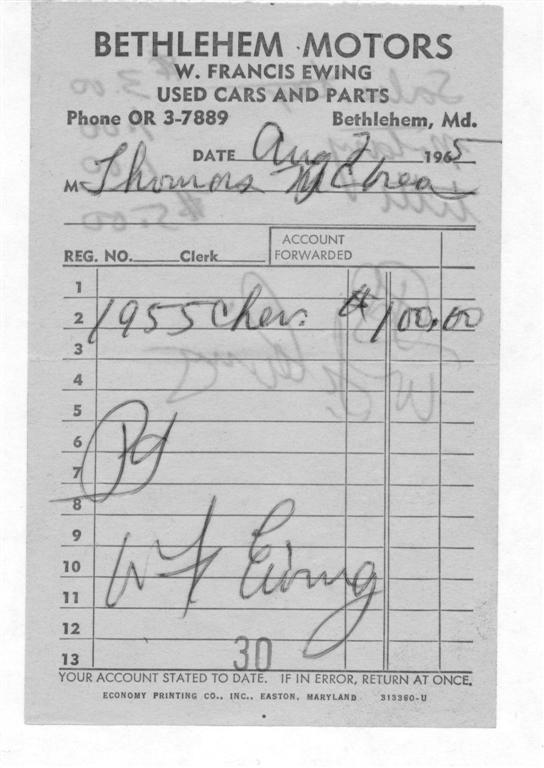 BETHLEHEM MOTORS
W. FRANCIS EWING
USED CARS AND PARTS
Phone OR 3-7889 Bethlehem, Md.
DATE Aug 7 1965
M Thomas McCrea
REG. NO. Clerk ACCOUNT FORWARDED
1
2 1955 Chev. $100.00
3
4
5
6 Pd
7
8
9
10 W F Ewing
11
12
13 30
YOUR ACCOUNT STATED TO DATE. IF IN ERROR, RETURN AT ONCE.
ECONOMY PRINTING CO., INC., EASTON, MARYLAND 313360-U